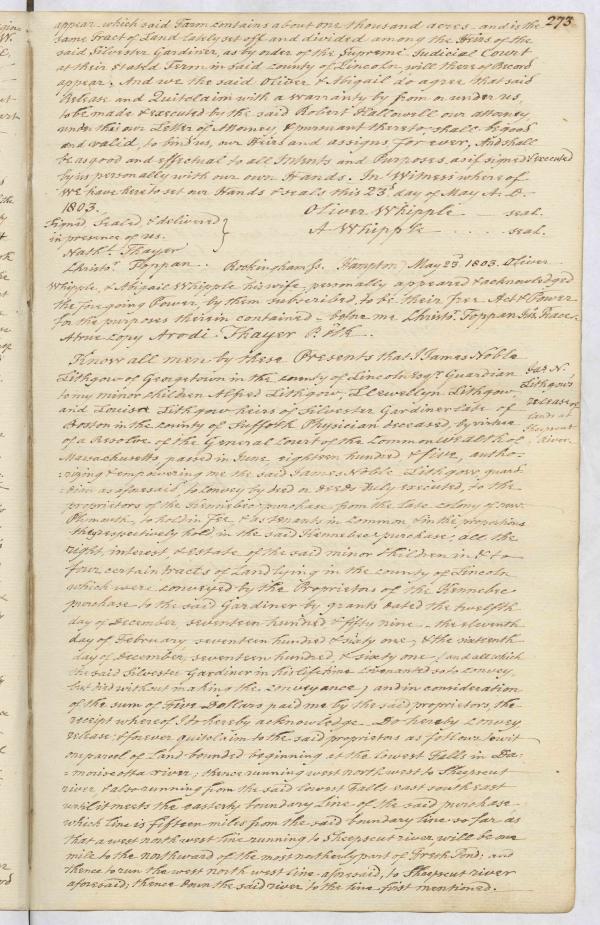 273
appear. which said Farm contains about one thousand acres and is the
same Tract of Land lately set off and divided among the Heirs of the
said Silvester Gardiner, as by order of the Supreme Judicial Court
at their Stated Term in said County of Lincoln, will thereof Record
appear. And we the said Oliver & Abigail do agree that said
Release and Quitclaim with a warranty by from or under us,
to be made & executed by the said Robert Hallowell our attorney
under this our Letter of Attorney, & pursuant thereto, shall be good
and valid, to bind us, our Heirs and assigns for ever, And shall
be as good and effectual to all Intents and Purposes, as if signed & executed
by us personally with our own Hands. In Witness whereof
We have hereto set our Hands & seals this 23d day of May A. D.
1803.
Oliver Whipple — seal.
Signed Sealed & delivered
A Whipple . . . . seal.
in presence of us.
Nathl. Thayer
Christor. Toppan. Rockingham Ss. Hampton May 23d 1803. Oliver
Whipple, & Abigail Whipple his wife personally appeared & acknowledged
the foregoing Power, by them subscribed, to be their free Act & Power
for the purposes therein contained - before me Christor. Toppan Jus. Peace.
A true copy Arodi Thayer P. Clk.
Know all men by these Presents that I James Noble
Jas. N.
Lithgow of Georgetown in the county of Lincoln Esqr. Guardian
Lithgow's
to my minor children Alfred Lithgow, Llewellyn Lithgow,
release of
and Louisa Lithgow heirs of Silvester Gardiner late of
lands at
Boston in the County of Suffolk Physician deceased, by virtue
Sheepscut
River.
of a Resolve of the General Court of the Commonwealth of
Massachusetts passed in June eighteen hundred & five, autho-
-rizing & empowering me the said James Noble Lithgow, guard
-dian as aforesaid, to convey by deed or deeds duly executed, to the
proprietors of the Kennebec purchase from the late colony of new
Plymouth, to hold in fee, & as tenants in common, & in the proportions
they respectively hold, in the said Kennebec purchase, all the
right, interest & estate of the said minor children in & to
four certain tracts of Land lying in the county of Lincoln
which were conveyed by the Proprietors of the Kennebec
purchase to the said Gardiner by grants dated the twelfth
day of december, seventeen hundred & fifty nine - the eleventh
day of February seventeen hundred & sixty one, & the sixteenth
day of december, seventeen hundred, & sixty one (and all which
the said Silvester Gardiner in his lifetime covenanted so to convey,
but died without making the conveyance) and in consideration
of the sum of Five Dollars paid me by the said proprietors, the
receipt whereof I do hereby acknowledge. Do hereby convey
release, & forever quitclaim to the said proprietors as follows, to wit
one parcel of Land bounded beginning at the lowest Falls in Da-
-moriscotta river; thence running west north west to Sheepscut
river, & also running from the said lowest Falls east south east
until it meets the easterly boundary Line of the said purchase
which line is fifteen miles from the said boundary line so far as
that a west north west line running to Sheepscut river will be one
mile to the northward of the most northerly part of Fresh Pond; and
thence to run the west north west line aforesaid, to Sheepscut river
aforesaid; thence down the said river to the line first mentioned.